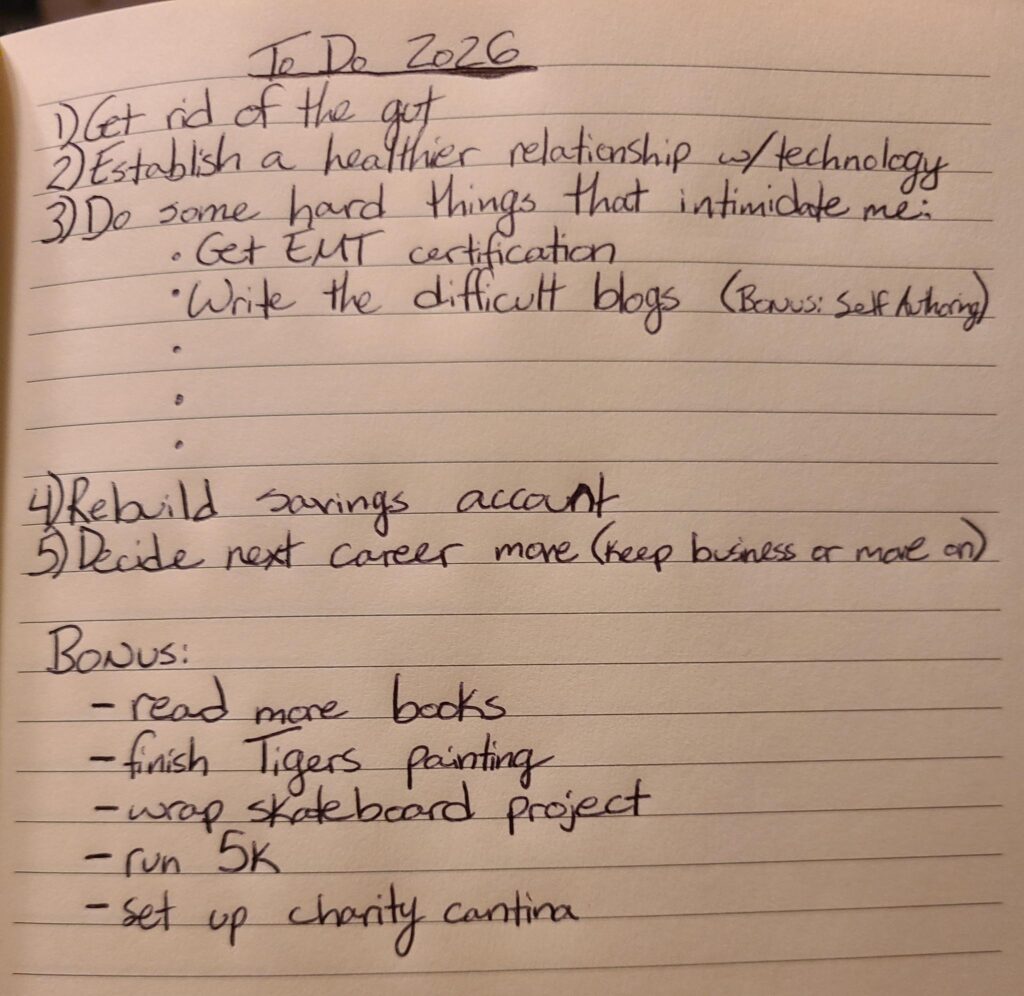 To Do 2026
1) Get rid of the gut
2) Establish a healthier relationship w/technology
3) Do some hard things that intimidate me:
• Get EMT certification
• Write the difficult blogs (Bonus: Self Authoring)
•
•
•
4) Rebuild savings account
5) Decide next career move (keep business or move on)
Bonus:
- read more books
- finish Tigers painting
- wrap skateboard project
- run 5K
- set up charity cantina